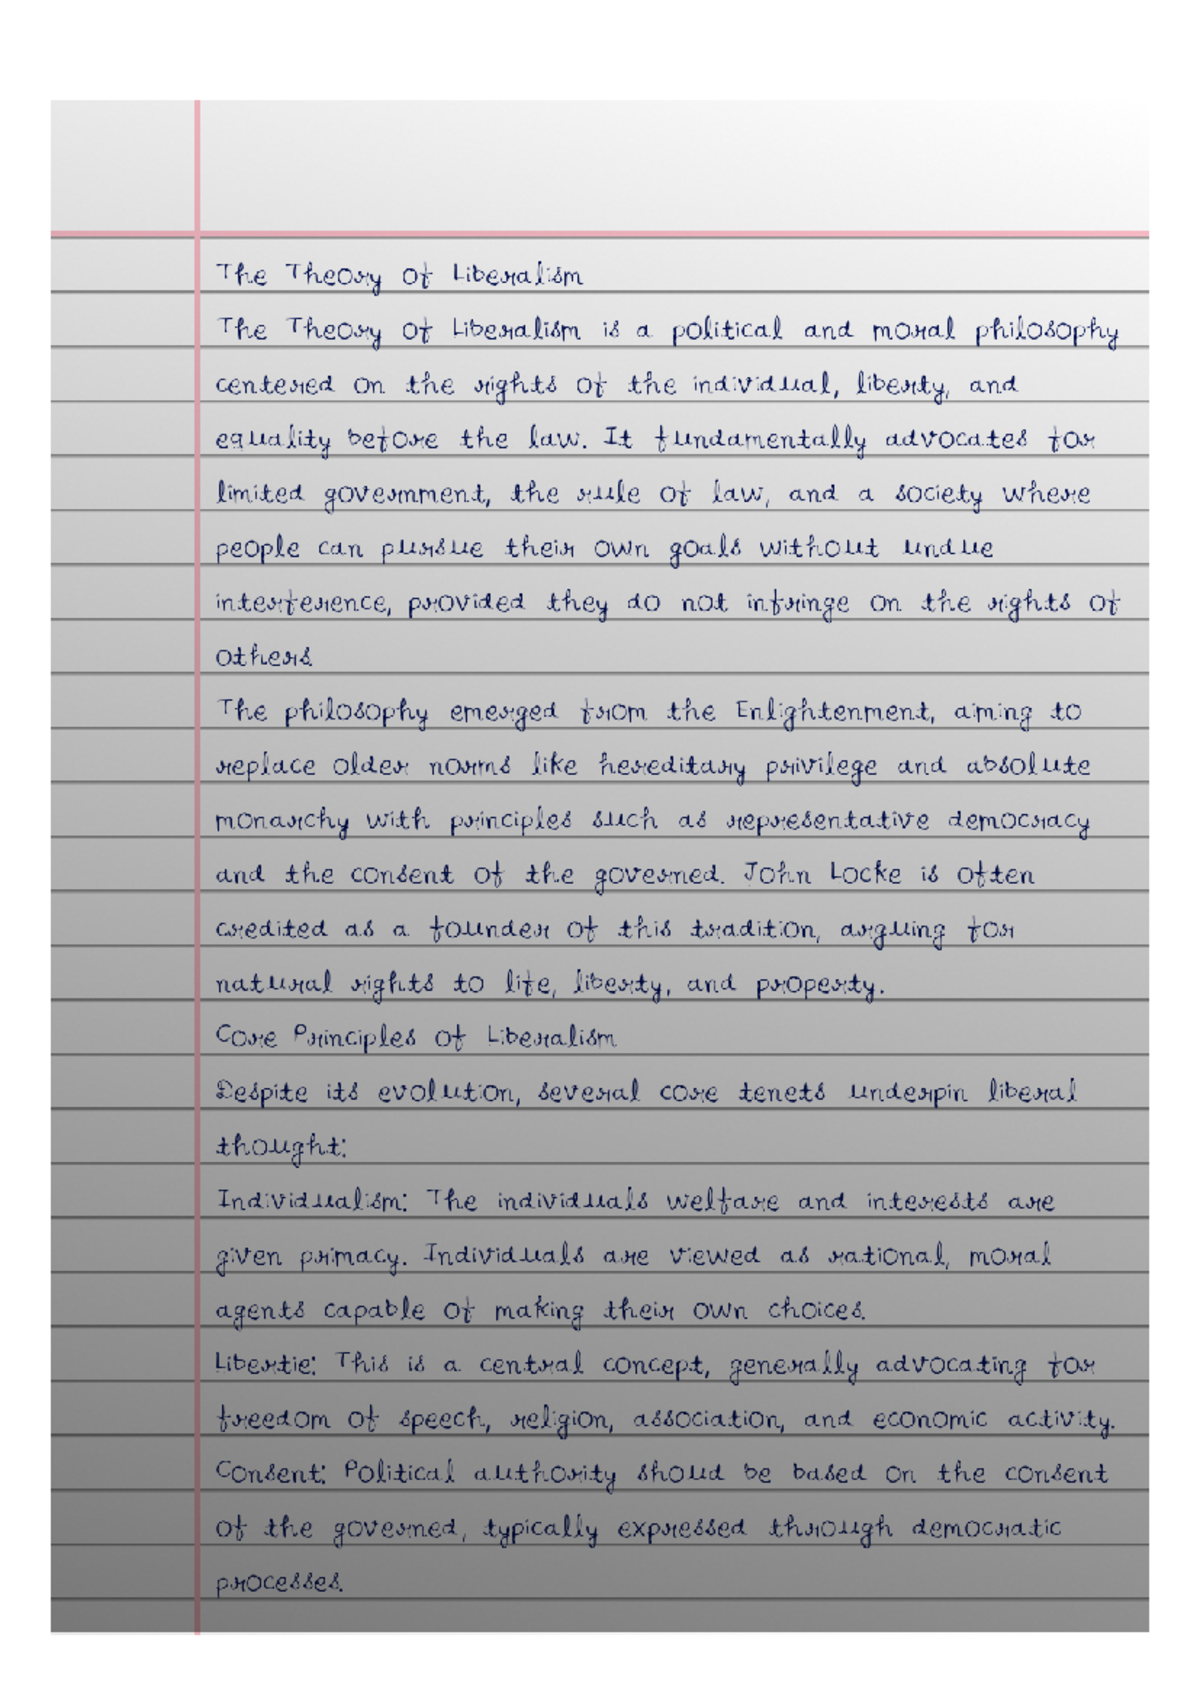 The Theory of Liberalism
The Theory of Liberalism is a political and moral philosophy
centered on the rights of the individual, liberty, and
equality before the law. It fundamentally advocates for
limited government, the rule of law, and a society where
people can pursue their own goals without undue
interference, provided they do not infringe on the rights of
others.
The philosophy emerged from the Enlightenment, aiming to
replace older norms like hereditary privilege and absolute
monarchy with principles such as representative democracy
and the consent of the governed. John Locke is often
credited as a founder of this tradition, arguing for
natural rights to life, liberty, and property.
Core Principles of Liberalism
Despite its evolution, several core tenets underpin liberal
thought:
Individualism: The individuals welfare and interests are
given primacy. Individuals are viewed as rational, moral
agents capable of making their own choices.
Libertie: This is a central concept, generally advocating for
freedom of speech, religion, association, and economic activity.
Consent: Political authority shoud be based on the consent
of the governed, typically expressed through democratic
processes.